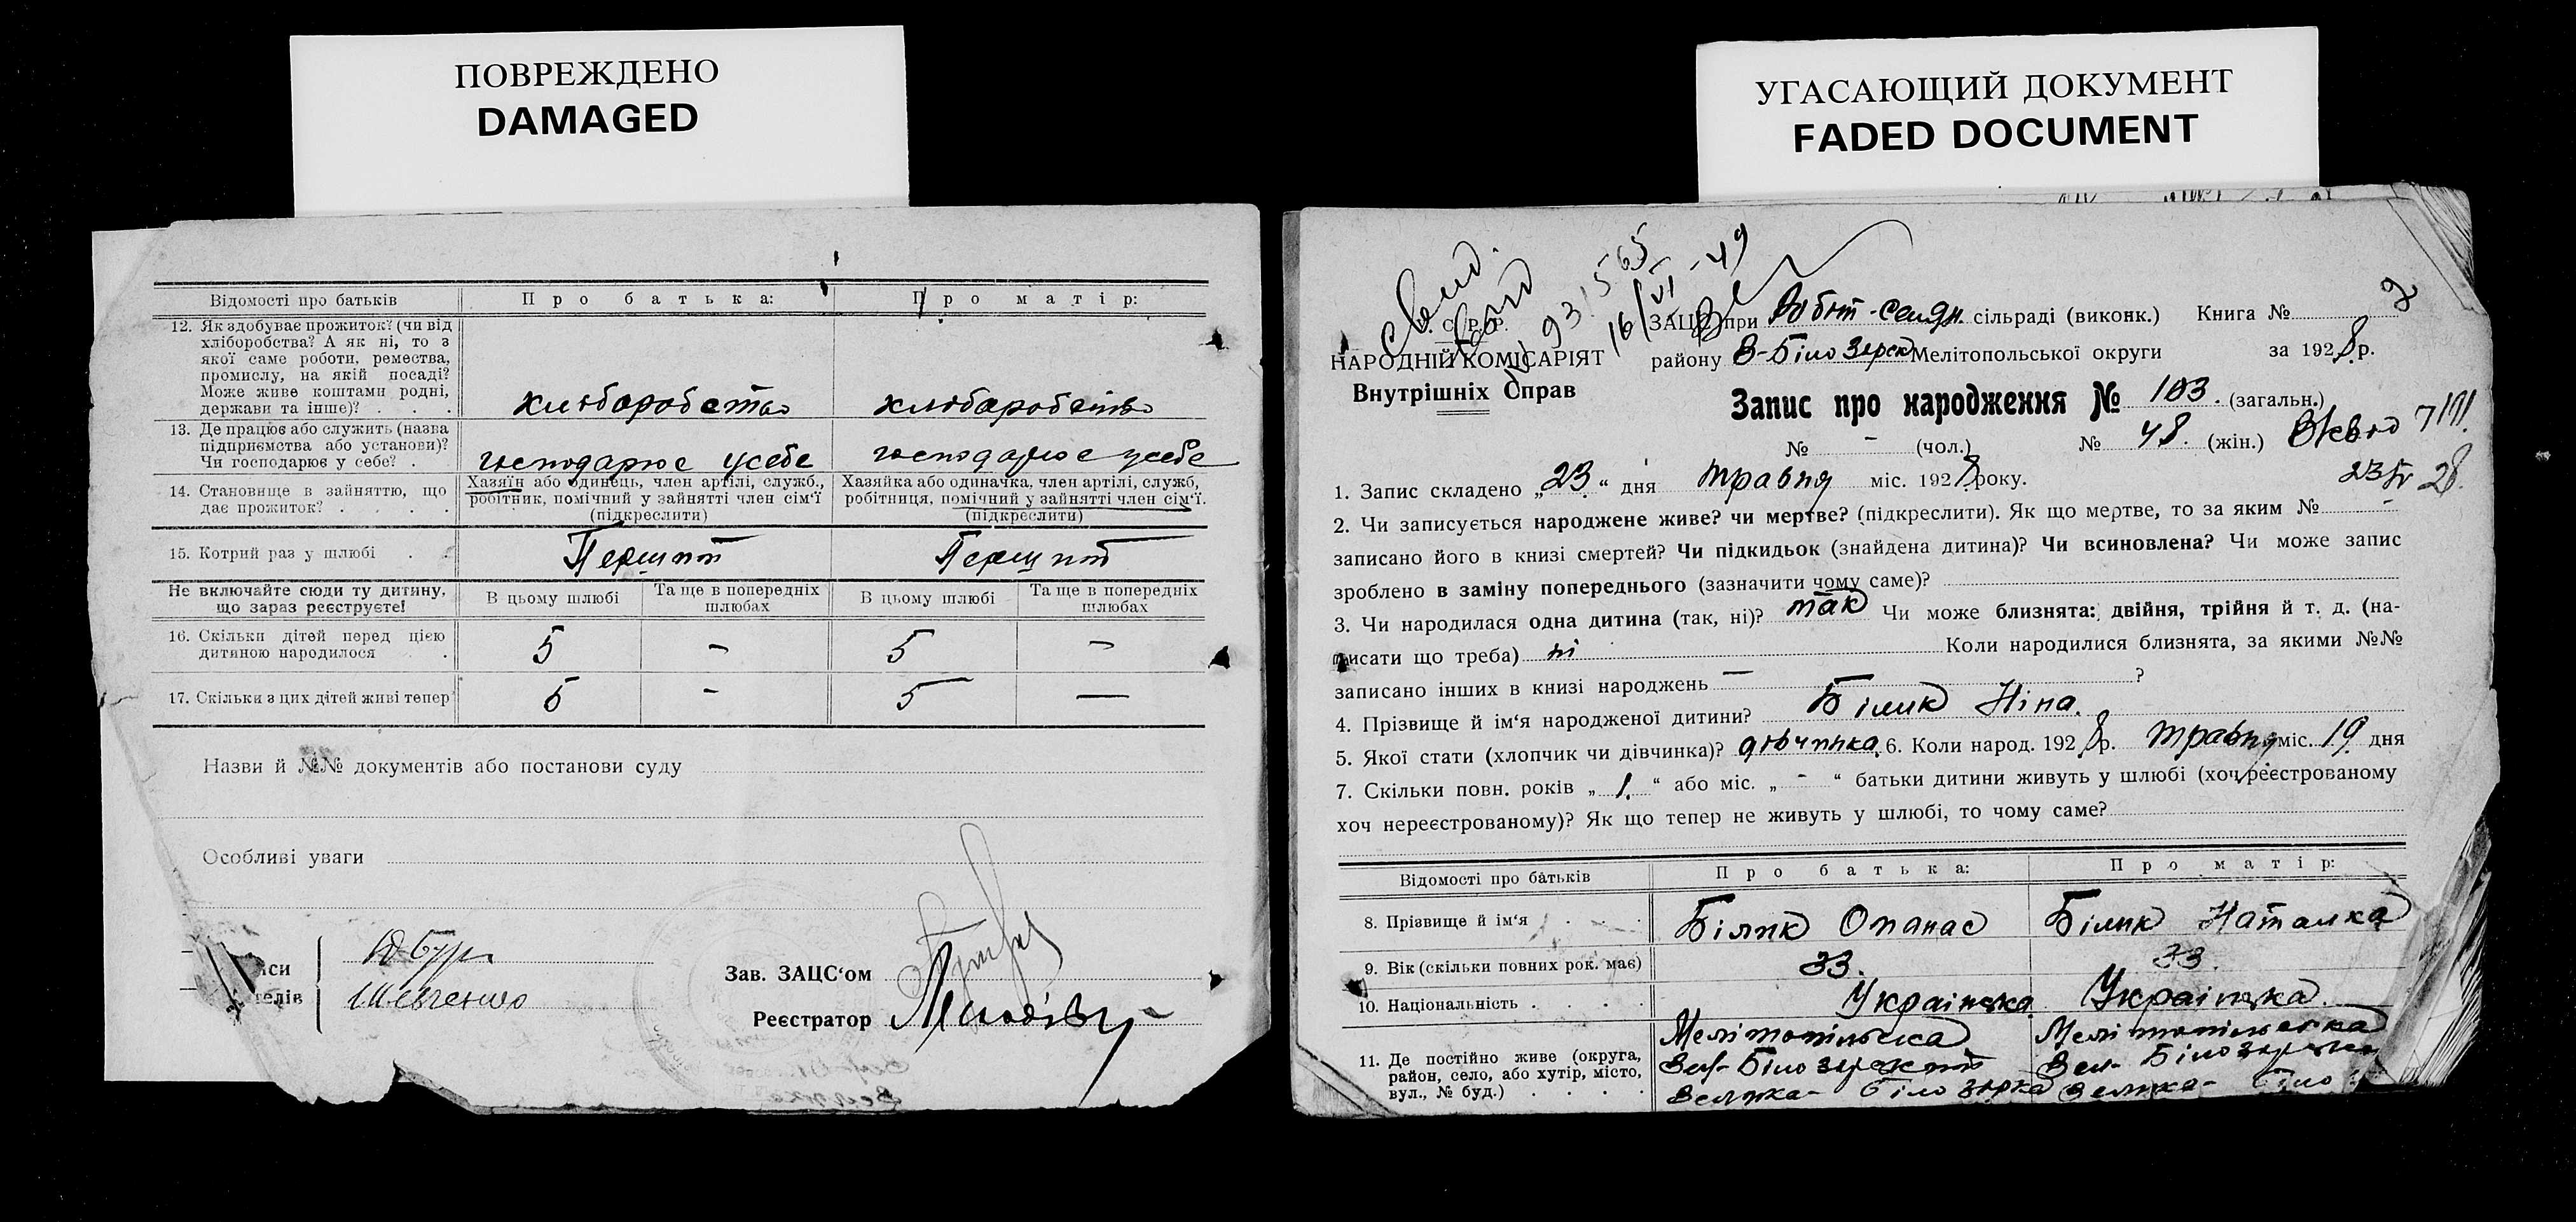 ПОВРЕЖДЕНО
DAMAGED
Відомості про батьків П р о б а т ь к а: П р о м а т і р:
12. Як здобуває прожиток? (чи від
хліборобства? А як ні, то з
якої саме роботи, ремества,
промислу, на якій посаді?
Може живе коштами родні,
держави та інше)? . . . хліборобство хліборобство
13. Де працює або служить (назва
підприємства або установи)?
Чи господарює у себе? . господарює усебе господарює усебе
14. Становище в зайняттю, що
дає прожиток? . . . .
Хазяїн або одинець, член артілі, служб.,
робітник, помічний у зайнятті член сім'ї
(підкреслити)
Хазяйка або одиначка, член артілі, служб,
робітниця, помічний у зайнятті член сім'ї.
(підкреслити)
15. Котрий раз у шлюбі . . Перший Перший
Не включайте сюди ту дитину,
що зараз реєструєте!
В цьому шлюбі Та ще в попередніх шлюбах В цьому шлюбі Та ще в попередніх шлюбах
16. Скільки дітей перед цією
дитиною народилося . 5 - 5 -
17. Скільки з цих дітей живі тепер 5 - 5 —
Назви й №№ документів або постанови суду
Особливі уваги
Шевченко
Зав. ЗАЦС'ом
Реєстратор
УГАСАЮЩИЙ ДОКУМЕНТ
FADED DOCUMENT
16/VI-49
С. Р. Р.
НАРОДНІЙ КОМІСАРІЯТ
Внутрішніх Справ
ЗАЦС при сільраді (виконк.) Книга № 2
району В-Білозерск Мелітопольської округи за 1928 р.
Запис про народження № 103. (загальн.)
№ - (чол.) № 48. (жін.)
1. Запис складено „23" дня травня міс. 1928 року.
2. Чи записується народжене живе? чи мертве? (підкреслити). Як що мертве, то за яким № -
записано його в книзі смертей? Чи підкидьок (знайдена дитина)? Чи всиновлена? Чи може запис
зроблено в заміну попереднього (зазначити чому саме)?
3. Чи народилася одна дитина (так, ні)? так Чи може близнята: двійня, трійня й т. д. (на-
писати що треба) ні Коли народилися близнята, за якими №№
записано інших в книзі народжень — ?
4. Прізвище й ім'я народженої дитини? Білик Ніна.
5. Якої стати (хлопчик чи дівчинка)? дівчинка 6. Коли народ. 1928 р. травня міс. 19 дня
7. Скільки повн. років „ 1. " або міс. „ - " батьки дитини живуть у шлюбі (хоч реєстрованому
хоч нереєстрованому)? Як що тепер не живуть у шлюбі, то чому саме?
Відомості про батьків П р о б а т ь к а: П р о м а т і р:
8. Прізвище й ім'я . . . Білик Опанас Білик Наталка
9. Вік (скільки повних рок. має) 33. 33.
10. Національність . . . . Українська Українська.
11. Де постійно живе (округа,
район, село, або хутір, місто,
вул., № буд.) . . . .
Мелітопільська Мелітопільська
Вел-Білозерский Вел-Білозерский
Велика-Білозірка Велика-Біло